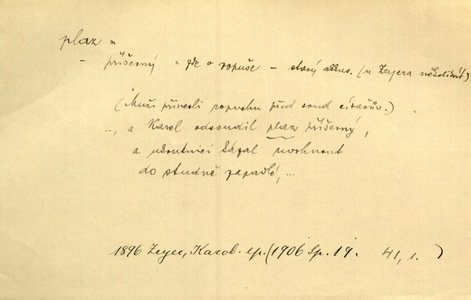 plaz =
- příšerný = zde o ropuše - starý akkus. (u Zeyera několikrát)
(Muži přinesli ropuchu před soud císařův.)
.., a Karel odsoudil plaz příšerný,
a ukrutnici kázal uvrhnout
do studně zapadlé, ...
1896 Zeyer, Karol. ep. (1906 Sp. 19. 41, 1.)